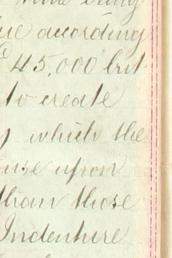 have being
due according
£45,000 but
to create
which the
use upon
than those
Indenture